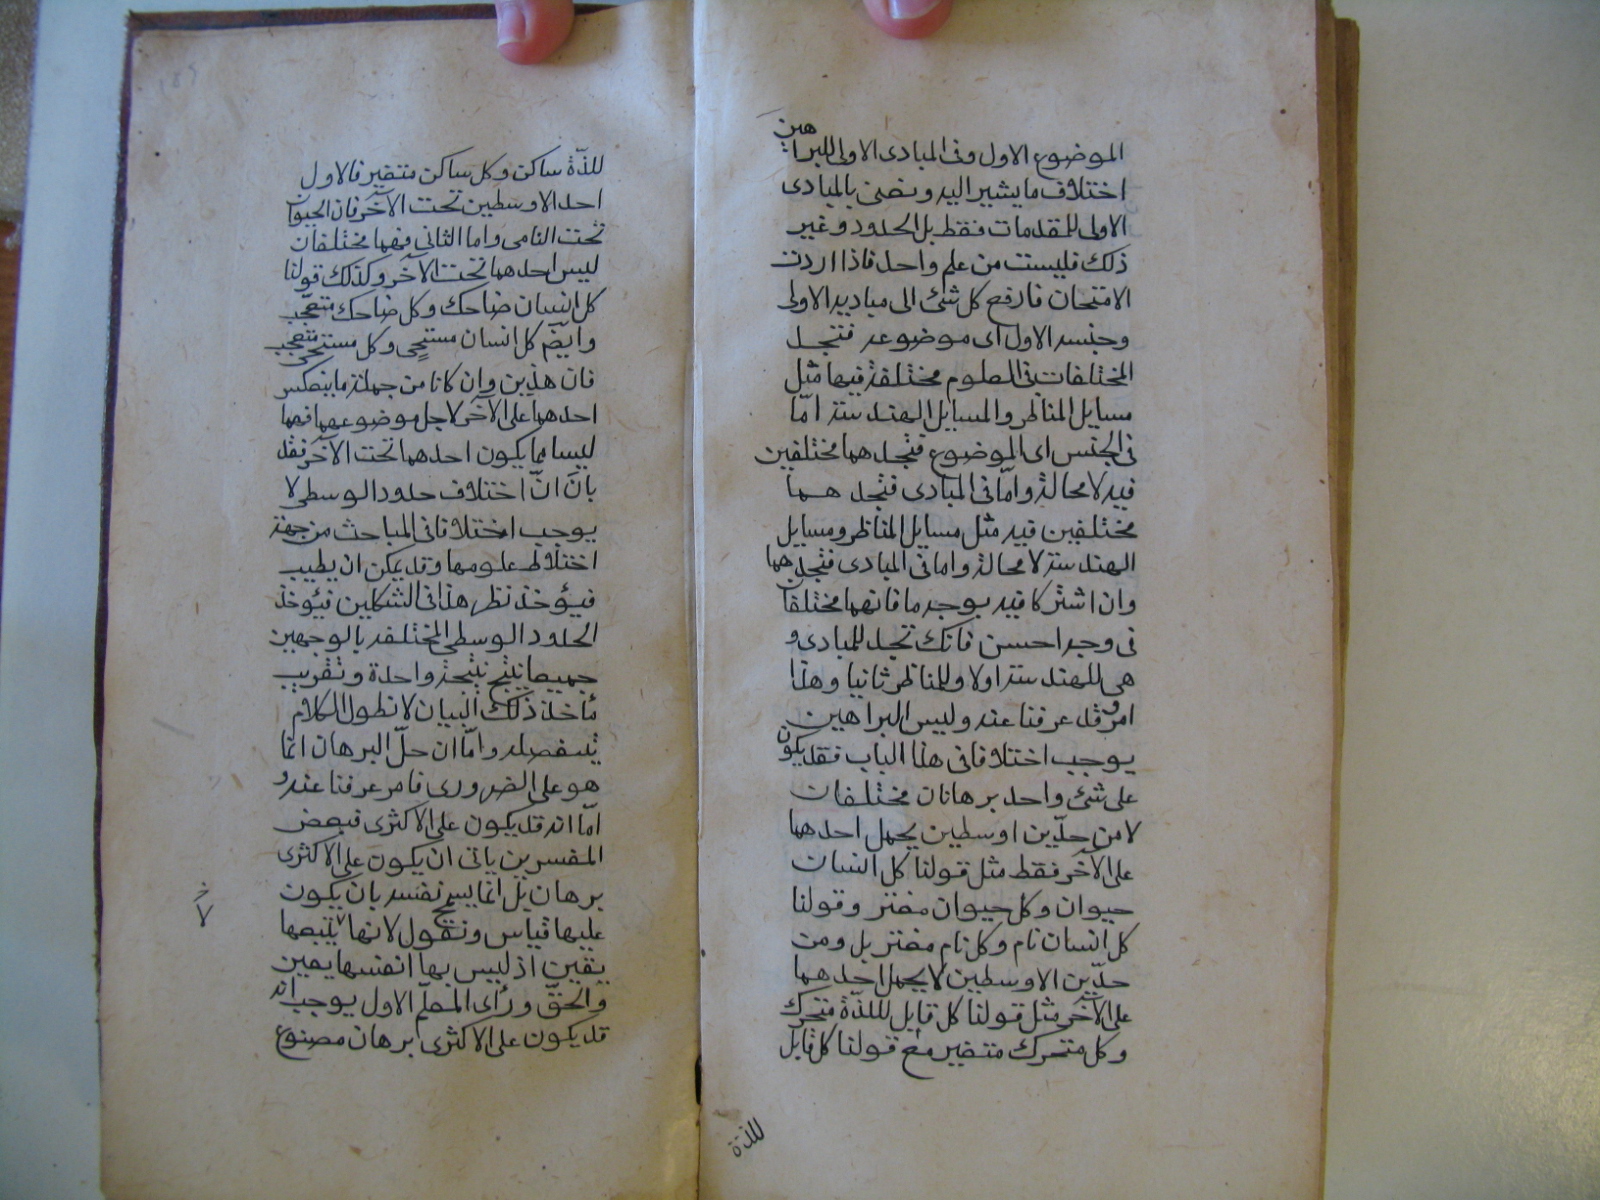 الموضوع الاول وفى المبادى الاولى للبراهين
اختلاف ما يشير اليه ونعنى بالمبادى
الاولى للمقدمات فقط بل الحدود وغير
ذلك فليست من علم واحد فاذا اردت
الامتحان فارفع كل شئ الى مباديه الاولى
وجنسه الاول اى موضوعه فتجد
المختلفات فى العلوم مختلفة فيها مثل
مسايل المناظر والمسايل الهندسية امّا
فى الجنس اى الموضوع فتجدهما مختلفين
فيه لا محالة وامّا فى المبادى فتجدهما
مختلفين فيه مثل مسايل المناظر ومسايل
الهندسة لا محالة واما فى المبادى فتجدهما
وان اشتركا فيه بوجه ما فانهما مختلفان
فى وجه احسن فانك تجد المبادى و
هى للهندسة اولا وللمناظر ثانيا وهذا
امر قد عرفنا عنه وليس البراهين
يوجب اختلافا فى هذا الباب فقد يكون
على شئ واحد برهانان مختلفان
لا من حدّين اوسطين يحمل احدهما
على الآخر فقط مثل قولنا كل انسان
حيوان وكل حيوان مغتذ وقولنا
كل انسان نام وكل نام مغتذ بل ومن
حدّين الاوسطين لا يحمل احدهما
على الآخر مثل قولنا كل قابل للذّة متحرك
وكل متحرك متغير مع قولنا كل قابل
للذة
للذّة ساكن وكل ساكن متغير فالاول
احد الاوسطين تحت الآخر فان الحيوان
تحت النامى واما الثانى فهما مختلفان
ليس احدهما تحت الآخر وكذلك قولنا
كل انسان ضاحك وكل ضاحك متعجّب
وايضّم كل انسان مستحى وكل مستحى متعجب
فان هذين وان كانا من جملة ما ينعكس
احدهما على الآخر لاجل موضوعهما فهما
ليسا مما يكون احدهما تحت الآخر فقد
بانَ انّ اختلاف حدود الوسطى لا
يوجب اختلافا فى المباحث من جهة
اختلاط علومها وقد يمكن ان يطلب
فيؤخذ نظر هذا فى الشكلين فيؤخذ
الحدود الوسطى المختلفه بالوجهين
جميعا ينتج نتيجة واحدة وتقريب
مأخذ ذلك البيان لا نطول الكلام
بتفصيله وامّا ان حدّ البرهان انما
هو على الضرورى فامر عرفنا عنه و
امّا انه قد يكون على الاكثرى فبعض
المفسرين يابى ان يكون على الاكثرى
برهان بل انما يسمح نفسه بان يكون
عليها قياس ونقول لانها لا يتبعها
يقين اذ ليس بها انفسها يقين
والحقّ ورأى المعلّم الاول يوجب انه
قد يكون على الاكثرى برهان مصنوع